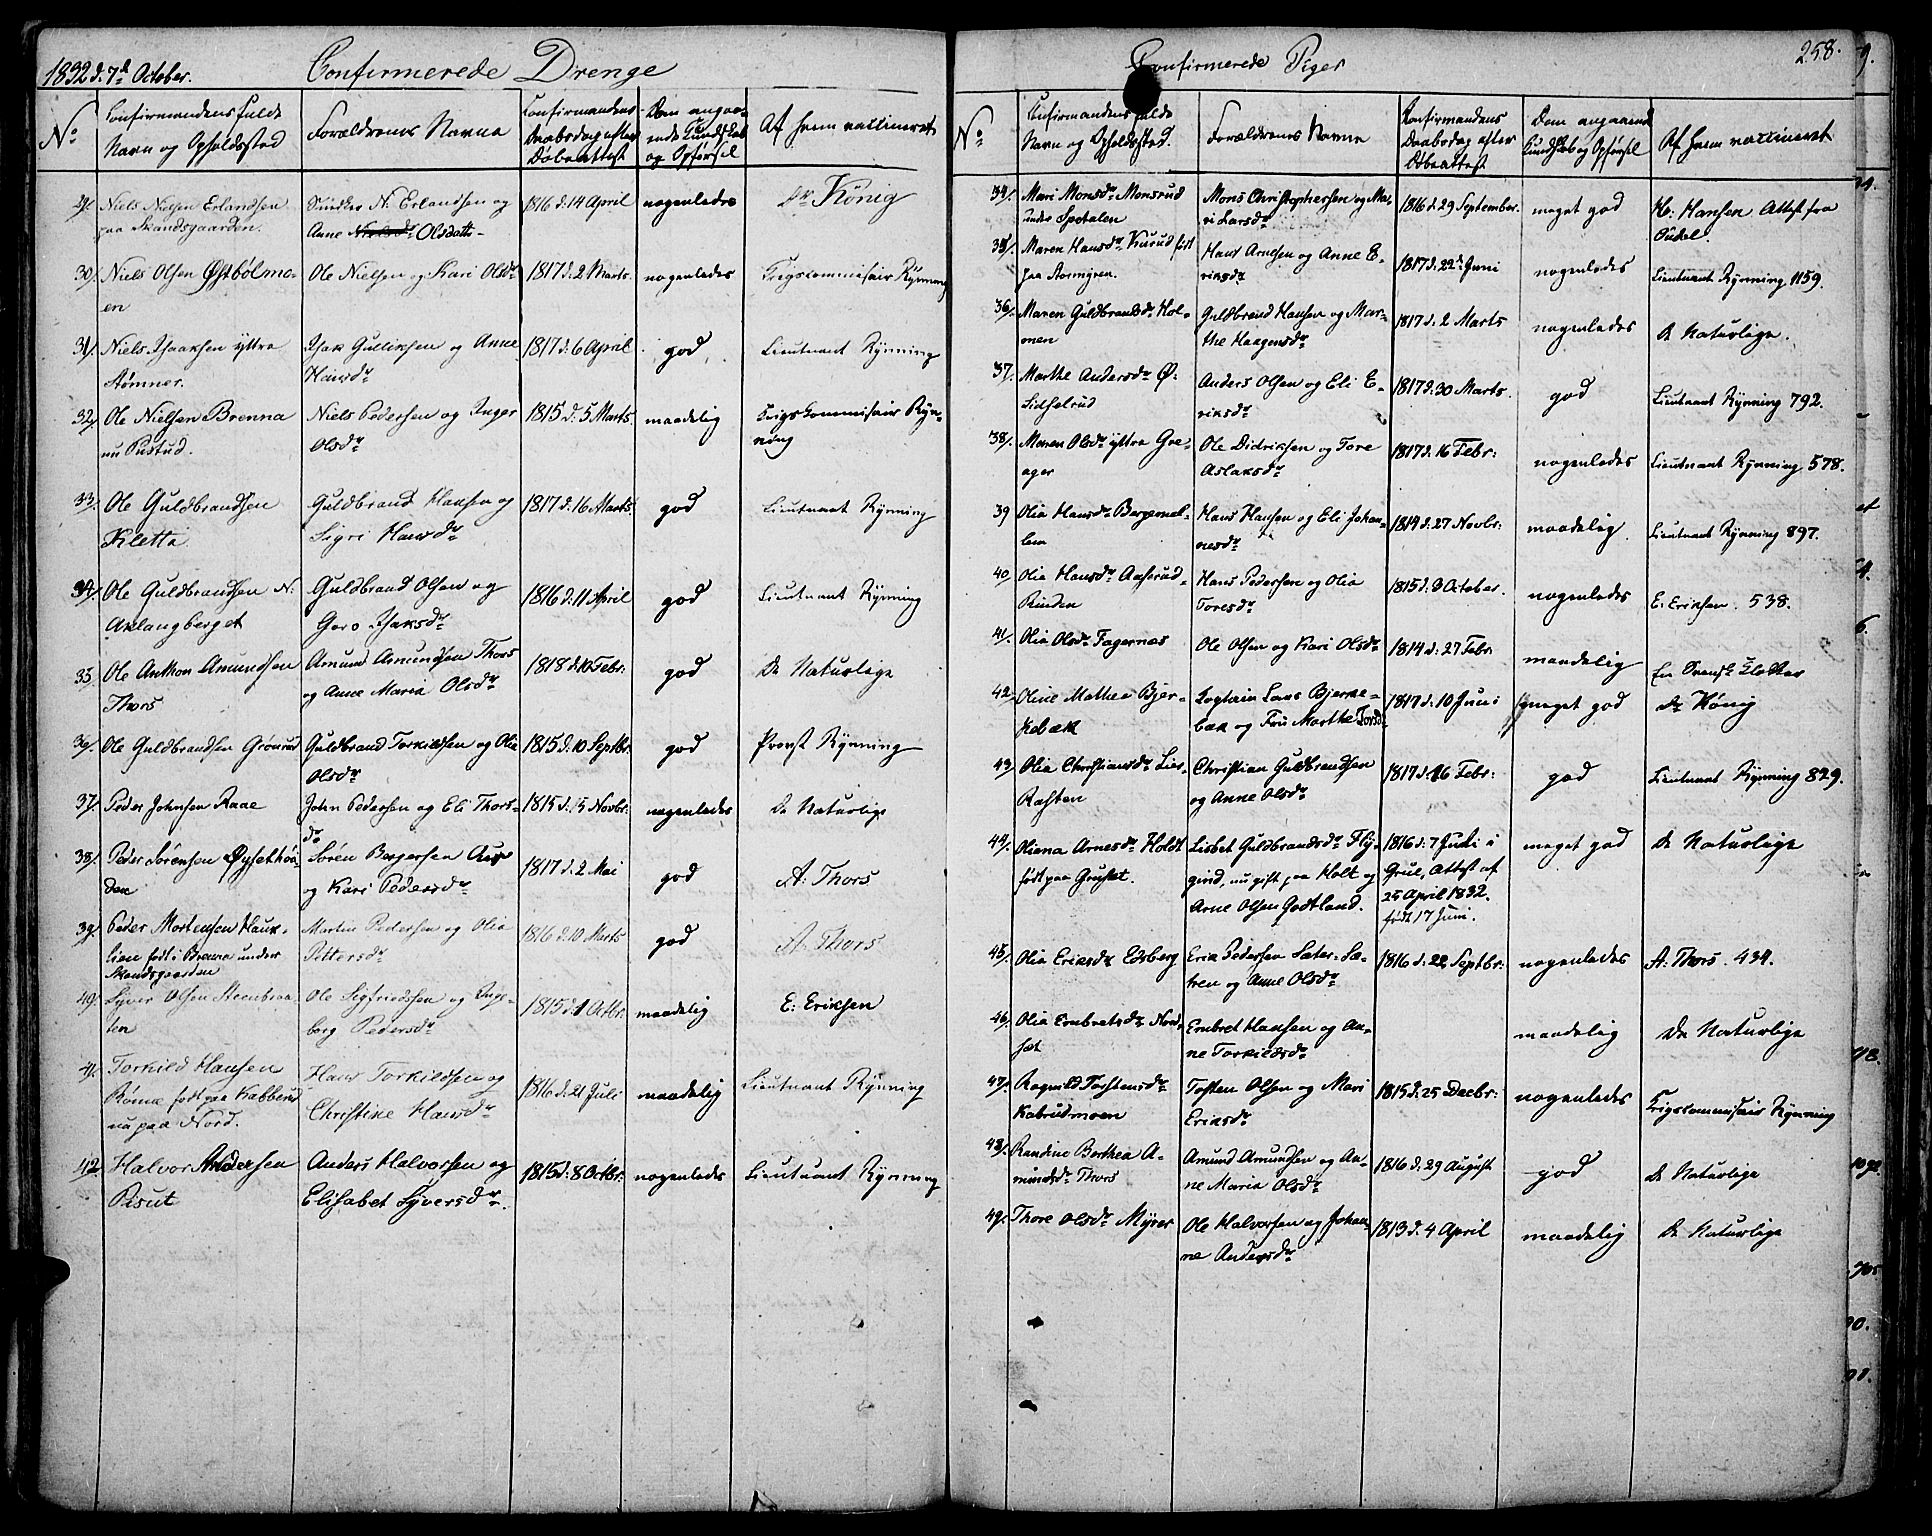 1832 d. 7d October.
Confirmerede Drenge
No
Confirmandens fulde
Navn og Opholdssted
Forældrenes Navne
Confirmandens
Daabsdag efter
Døbeattest
Dom angaaende
Kundskab
og Opførsel
Af hvem vaccineret
29/. Niels Nielsen Erlandsen
paa Skandsgaarden.
N: Erlandsen og
Anne Nielsdr Olsdatt-
1816 d. 14 April
nogenledes
Dr König
30/. Niels Olsen Østbölmo-
en
Ole Nielsen og Kari Olsdr
1817 d. 2 Marts.
nogenledes
Krigscommisair Rynning
31/. Niels Isaaksen yttre
Stømner.
Isak Gulliksen og Anne
Hansdr
1817 d. 6 April
god
Lieutnant Rynning
32/. Ole Nielsen Brenna
nu Pustud.
Niels Pedersen og Inger
Olsdr
1815 d. 5 Marts.
maadelig
Krigskommisair Ryn-
ning
33/. Ole Guldbrandsen
Kletta
Guldbrand Hansen og
Sigri Hansdr
1817 d. 16 Marts.
god
Lieutnant Rynning
34/. Ole Guldbrandsen N:
Aklangberget
Guldbrand Olsen og
Goro Isaksdr
1816 d. 11 April
god
Lieutnant Rynning
35/. Ole Anthon Amundsen
Thors
Amund Amundsen Thors
og Anne Maria Olsdr
1818 d. 10 Febr:
god
De Naturlige
36/. Ole Guldbrandsen Grönrud
Guldbrand Torkildsen og Olia
Olsdr
1815 d. 10 Septbr:
god
Provst Rynning
37/. Peder Johnsen Raae
John Pedersen og Eli Thors-
dr
1815 d. 5 Novbr:
nogenledes
De Naturlige
38/. Peder Sörensen
den
Sören Bergersen
og Kari Pedersdr
1817 d. 2 Mai
god
A: Thors
39/. Peder Mortensen Hauk-
lien født i Brenna under
Skandsgaarden
Martin Pedersen og Olia
Pettersdr
1816 d. 10 Marts
god
A: Thors
40/. Syver Olsen Steenbraa-
ten
Ole Sigfriedsen og Inge-
borg Pedersdr
1815 d. 1 Octbr:
maadelig
E: Eriksen
41/. Torkild Hansen
Röma født paa Kabberud
nu paa Nord.
Hans Torkildsen og
Christine Hansdr
1816 d. 21 Juli
maadelig
Lieutnant Rynning
42 Halvor Andersen
Pisut
Anders Halvorsen og
Elisabet Syversdr.
1815 d. 8 Octbr:
nogenledes
Lieutnant Rynning
Confirmerede Piger
258.
No
Confirmandens fulde
Navn og Opholdssted.
Forældrenes Navne
Confirmandens
Daabsdag efter
Døbeattest
Dom angaaende
Kundskab og Opførsel
Af hvem vaccineret
34/. Mari Monsdr Monsrud
under Spetalen
Mons Christophersen og Ma-
ri Larsdr
1816 d. 29 September.
meget god
H: Hansen Attest fra
35/. Maren Hansdr Kurud født
paa Stormyren.
Hans Arnesen og Anne E-
riksdr
1817 d. 22de Juni
nogenledes
Lieutnant Rynning 1159.
36/. Maren Guldbrandsdr Hol-
men
Guldbrand Hansen og Mar-
the Haagensdr
1817 d. 2 Marts
nogenledes
De Naturlige.
37. Marthe Andersdr Ø:
Lidselrud
Anders Olsen og Eli E-
riksdr
1817 d. 30 Marts.
god
Lieutnant Rynning 792.
38/. Maren Olsdr yttre Gre-
ager
Ole Didriksen og Tore
Aslaksdr
1817 d. 16 Febr:
nogenledes
Lieutnant Rynning 578.
39 Olia Hansdr Bergernel-
len
Hans Hansen og Eli Johan-
nesdr
1814 d. 27 Novbr:
maadelig.
Lieutnant Rynning 897.
40/ Olia Hansdr Aaserud-
Rinden
Hans Pedersen og Olia
Toresdr
1815 d. 9 October.
nogenledes
E: Eriksen. 538.
41/. Olia Olsdr Fagernæs
Ole Olsen og Kari Olsdr
1814 d. 27 Febr:
maadelig
En Svensk Klokker
42/. Oline Mathea Bjer-
kebæk
Captain Lars Bjerke-
bæk og Fru Marthe Torsdr
1817 d. 10 Juni
meget god
Dr König
43/. Olia Christiansdr Lier-
Rasten
Christian Guldbrandsen
og Anne Olsdr
1817 d. 16 Febr:
god
Lieutnant Rynning 829.
44/. Oliana Arnesdr Holdt
født paa Gruset.
Lisbet Guldbrandsdr Fly-
gind, nu gift paa Holt og
Arne Olsen Godtland.
1816 d. 7 Juli i
Grue, Attest af
25 April 1832.
født 17 Juni.
meget god
De Naturlige
45/. Olia Eriksdr Edsberg
Erik Pedersen Sæter-Sæ-
tren og Anne Olsdr
1816 d. 22 Septbr:
nogenledes
A: Thors. 434.
46/. Olia Embretsdr Nord-
set
Embret Hansen og An-
ne Torkildsdr
maadelig
De Naturlige
47/. Ragnild Torstensdr
Kabrudmoen
Tosten Olsen og Mari
Eriksdr
1815 d. 25 Decbr:
nogenledes
Krigscommisair Rynning
48/. Randine Berthea A-
mundsdr Thors
Amund Amundsen og An-
ne Maria Olsdr
1816 d. 29 August
god
De Naturlige
49/. Thore Olsdr Myrer
Ole Halvorsen og Johan-
ne Andersdr
1813 d. 4 April
maadelig
De Naturlige